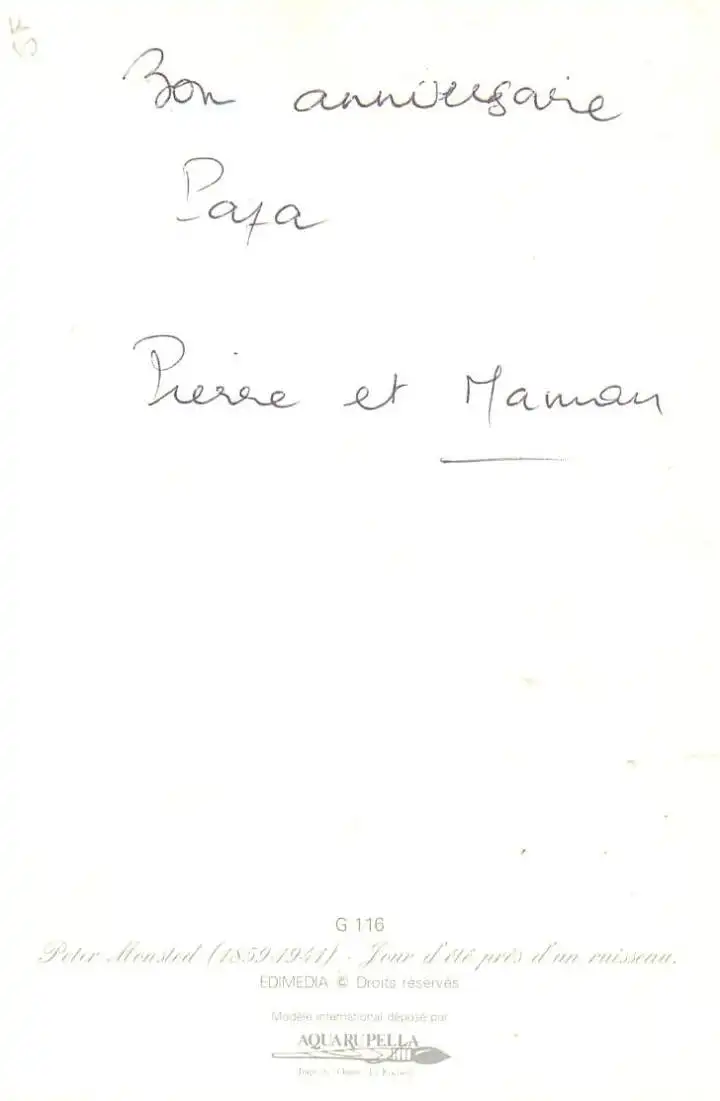 Bon anniversaire
Papa
Pierre et Maman
G 116
Peter Monsted (1859-1941) - Jour d'été près d'un ruisseau.
EDIMEDIA © Droits réservés
Modèle international déposé par
AQUARUPELLA